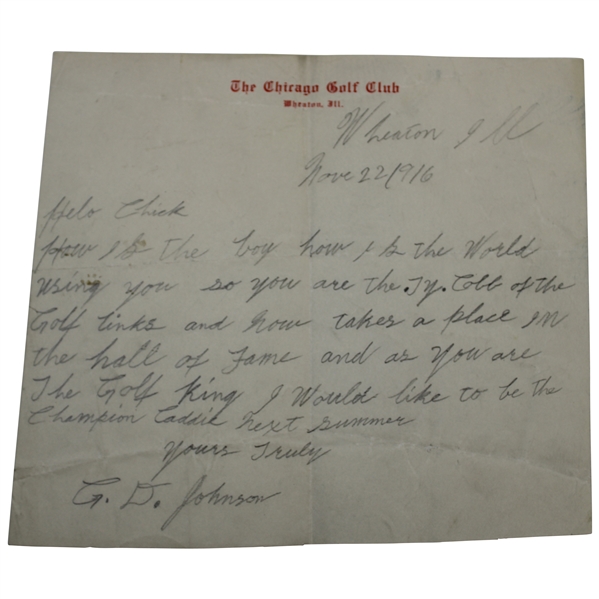 The Chicago Golf Club
Wheaton, Ill.
Wheaton Ill
Nove 22/916
Helo Chick
How is the boy how is the World
using you so you are the .Ty. Cobb of the
Golf links and now takes a place in
the hall of Fame and as you are
The Golf King I Would like to be the
Champion Caddie next summer
Yours Truly
G. D. Johnson